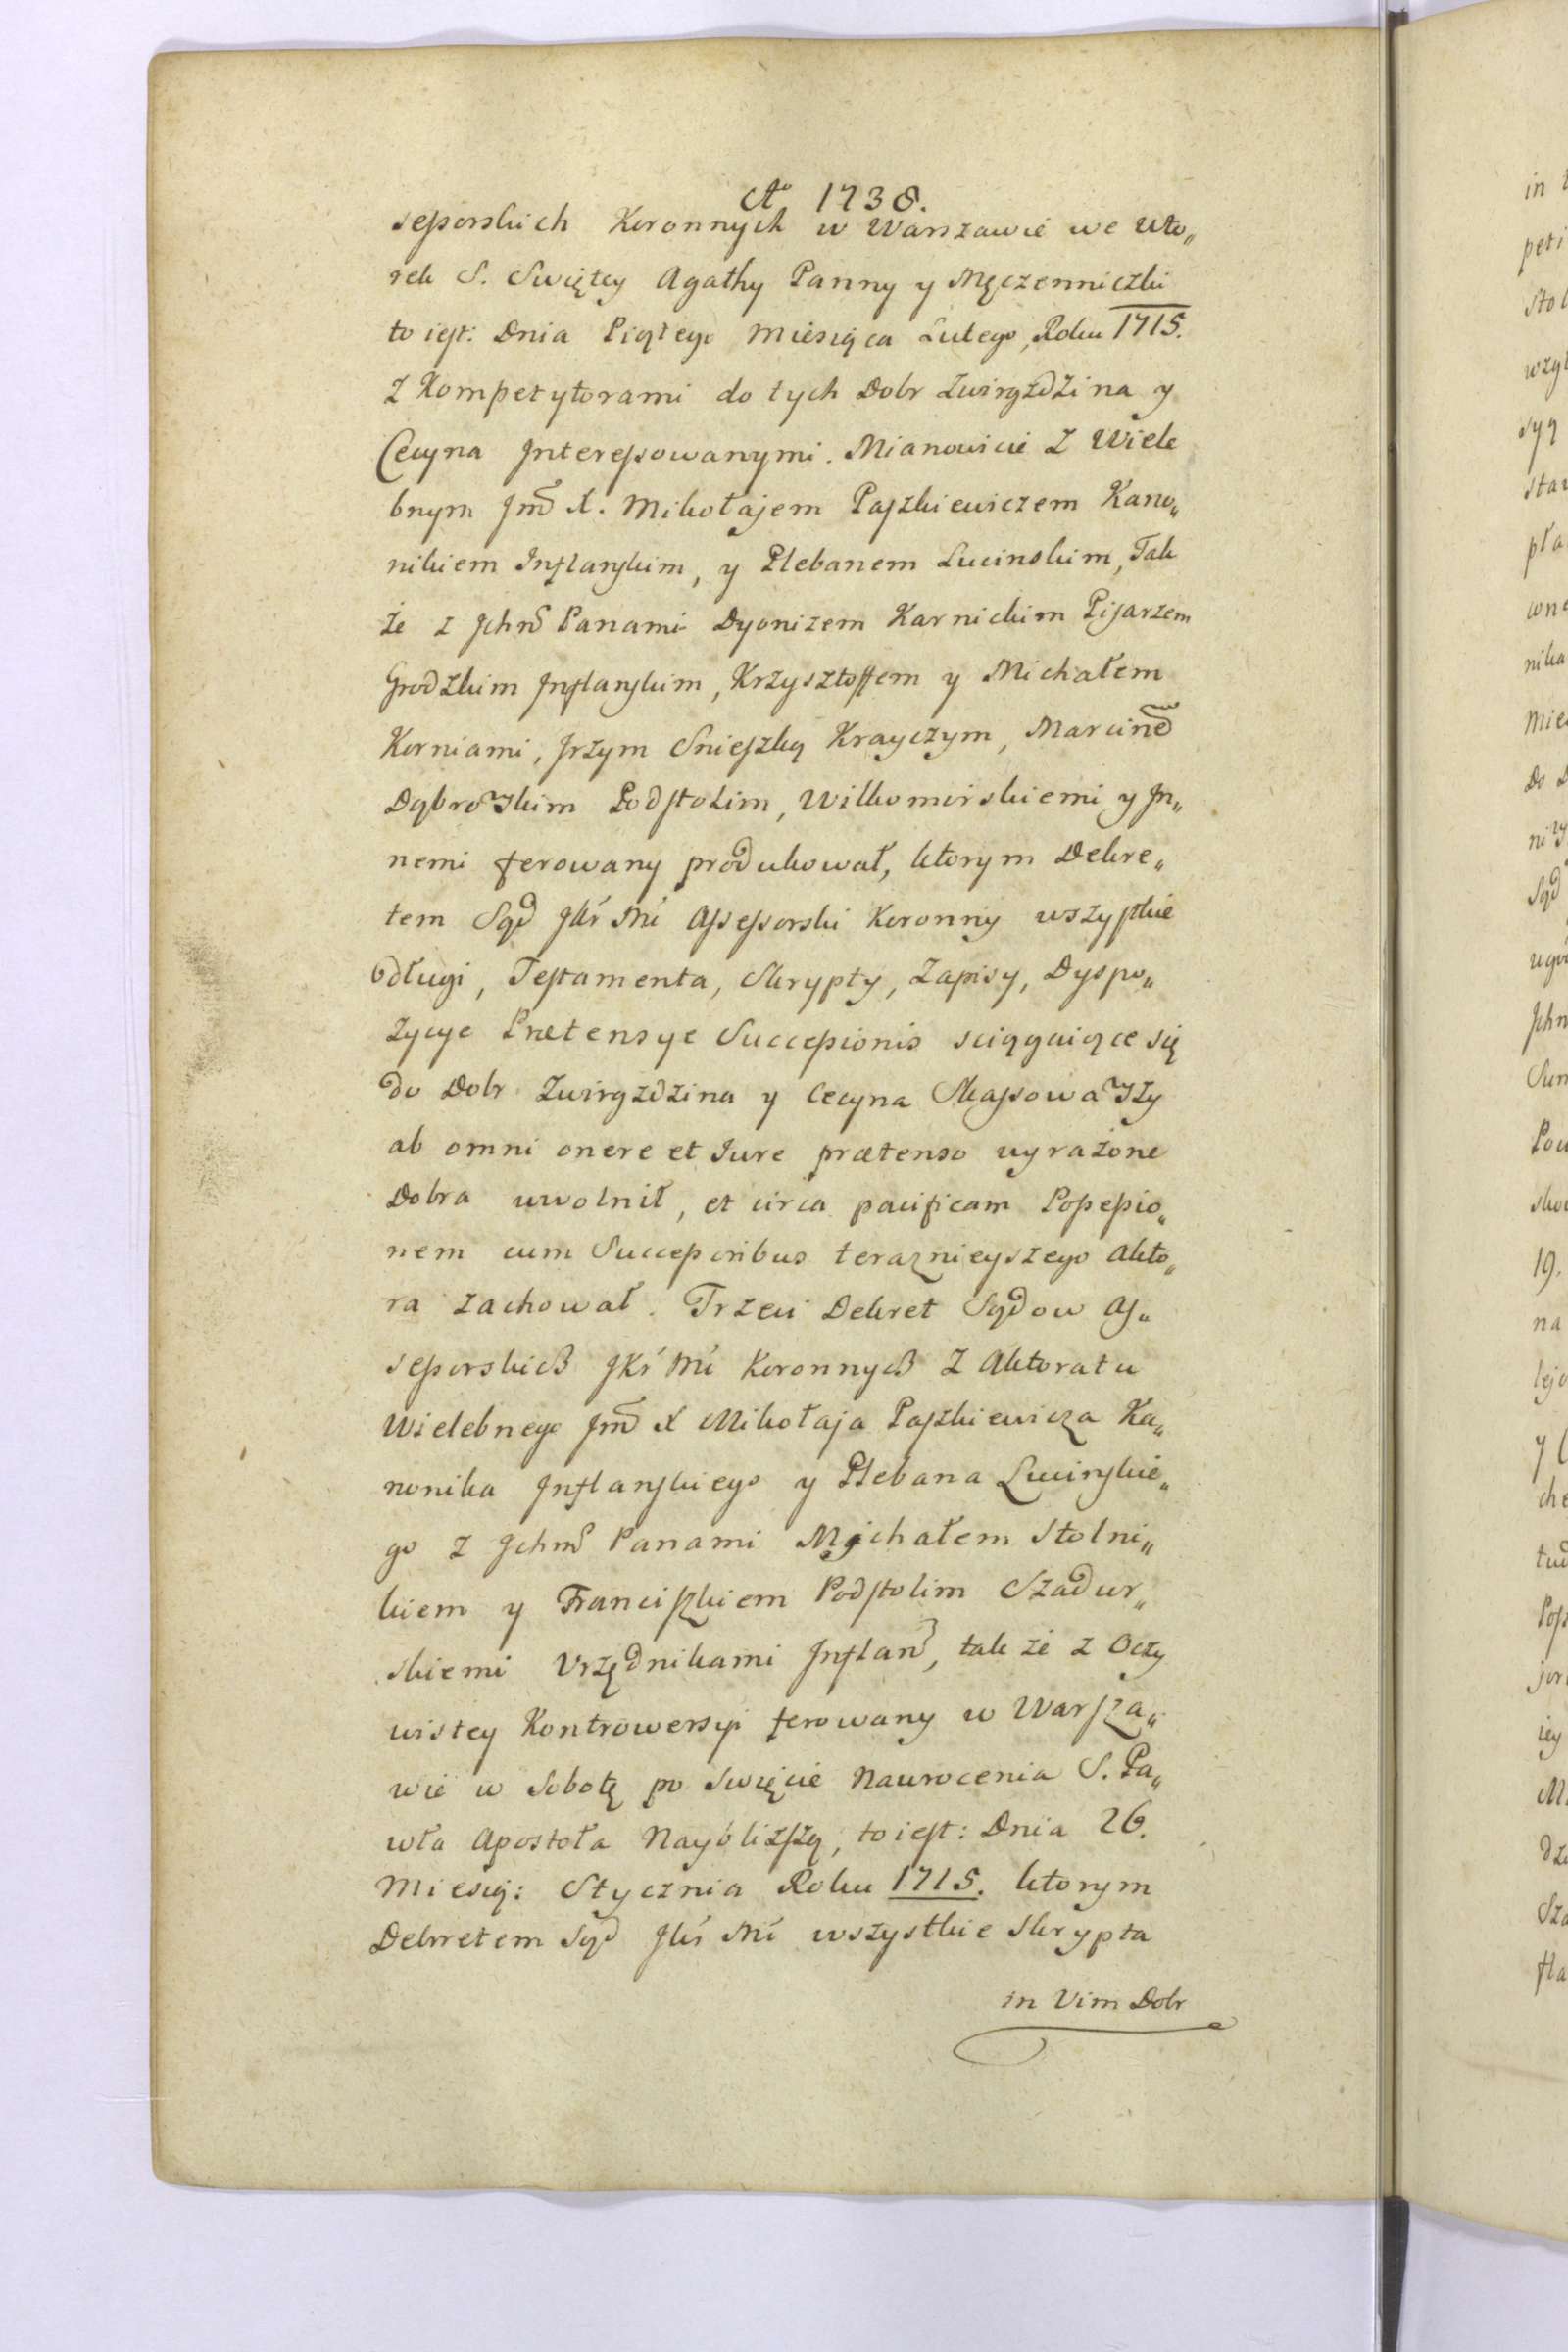 Aº 1738.
sessorskich Koronnych w Warszawie we wto„
rek S. Swiętey Agathy Panny y Męczenniczki
to iest: Dnia Piątego Miesiąca Lutego, Roku 1715.
z Kompetytorami do tych Dobr Zwirgzdzina y
Cecyna Interessowanymi. Mianowicie z Wiele
bnym Jmć X. Mikołajem Paszkiewiczem Kano„
nikiem Inflanskim, y Plebanem Lucinskim, Tak
że z Jchmć Panami Dyonizem Karnickim Pisarzem
Grodzkim Inflanskim, Krzysztoffem y Michałem
Korniami, Jrzym Snieszką Krayczym, Marcinem
Dąbrowskim Podstolim, Wilkomirskiemi y In„
nemi ferowany produkował, ktorym Dekre„
tem Sąd JKr Mći Assessorski Koronny wszystkie
Odługi, Testamenta, Skrypty, Zapisy, Dyspo„
zycye Prætensye Successionis sciągaiące się
do Dobr Zwirgzdzina y Cecyna Skassowawszy
ab omni onere et Jure prætenso wyrażone
Dobra uwolnił, et circa pacificam Possessio„
nem cum Successoribus teraznieyszego Akto„
ra zachował. Trzeci Dekret Sądow As„
sessorskich JKr Mći Koronnych z Aktoratu
Wielebnego Jmć X Mikołaja Paszkiewicza Ka„
nonika Inflanskiego y Plebana Lucinskie„
go z Jchmć Panami Michałem Stolni„
kiem y Franciszkiem Podstolim Szadur„
skiemi Urzędnikami Inflan, tak że z Oczy
wistey Kontrowersyi ferowany w Warsza„
wie w Sobotę po Swięcie Nawrocenia S. Pa„
wła Apostoła Nayblizszą, to iest: Dnia 26.
Miesią: Stycznia Roku 1715. ktorym
Dekretem Sąd JKr Mći wszystkie Skrypta
in Vim Dobr